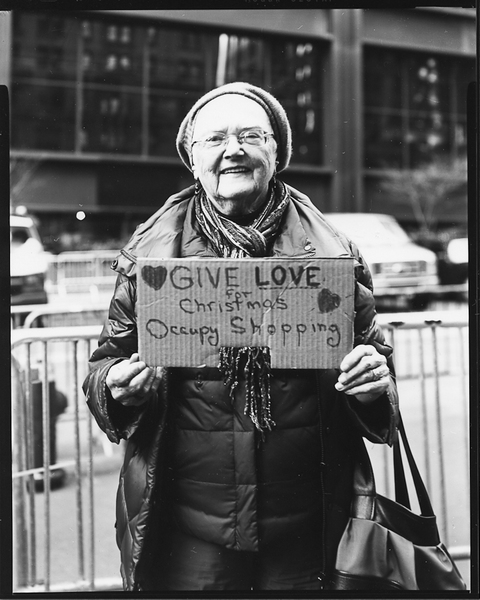 GIVE LOVE
for
Christmas
Occupy Shopping